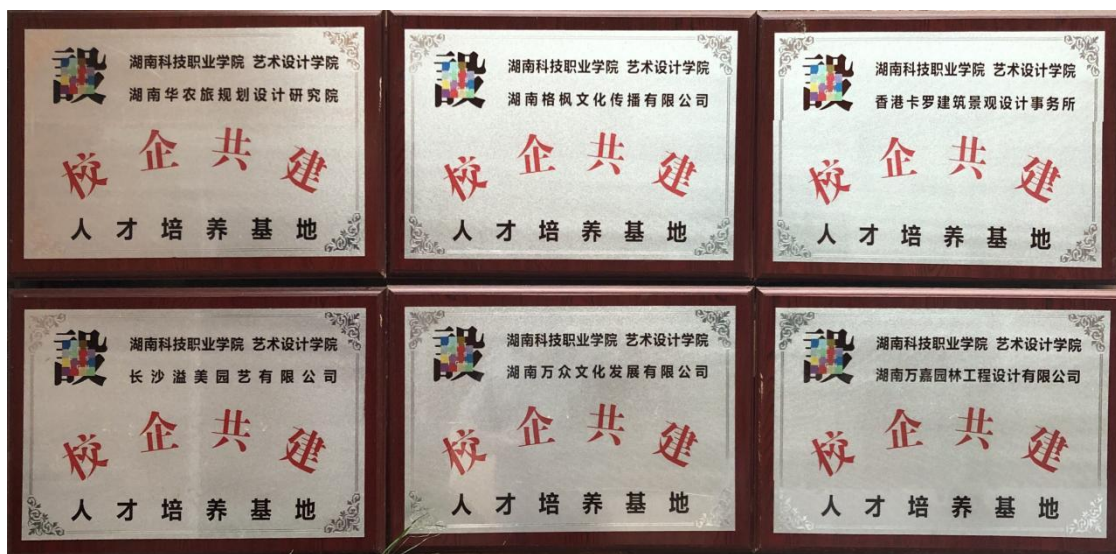 設
湖南科技职业学院 艺术设计学院
湖南华农旅规划设计研究院
校企共建
人才培养基地
設
湖南科技职业学院 艺术设计学院
湖南格枫文化传播有限公司
校企共建
人才培养基地
設
湖南科技职业学院 艺术设计学院
香港卡罗建筑景观设计事务所
校企共建
人才培养基地
設
湖南科技职业学院 艺术设计学院
长沙溢美园艺有限公司
校企共建
人才培养基地
設
湖南科技职业学院 艺术设计学院
湖南万众文化发展有限公司
校企共建
人才培养基地
設
湖南科技职业学院 艺术设计学院
湖南万嘉园林工程设计有限公司
校企共建
人才培养基地